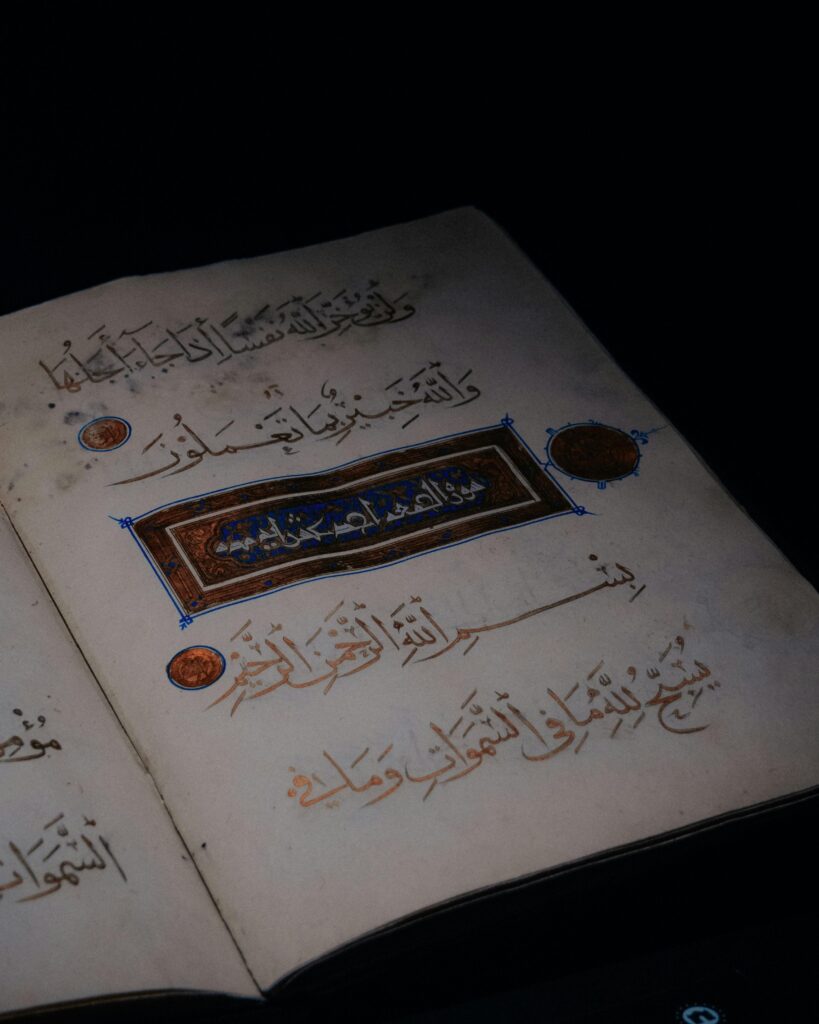 وَلَنْ يُؤَخِّرَ اللَّهُ نَفْسًا إِذَا جَاءَ أَجَلُهَا
وَاللَّهُ خَبِيرٌ بِمَا تَعْمَلُونَ
سورة
بِسْمِ اللَّهِ الرَّحْمَنِ الرَّحِيمِ
يُسَبِّحُ لِلَّهِ مَا فِي السَّمَوَاتِ وَمَا فِي
مُؤْمِ
السَّمَوَاتِ